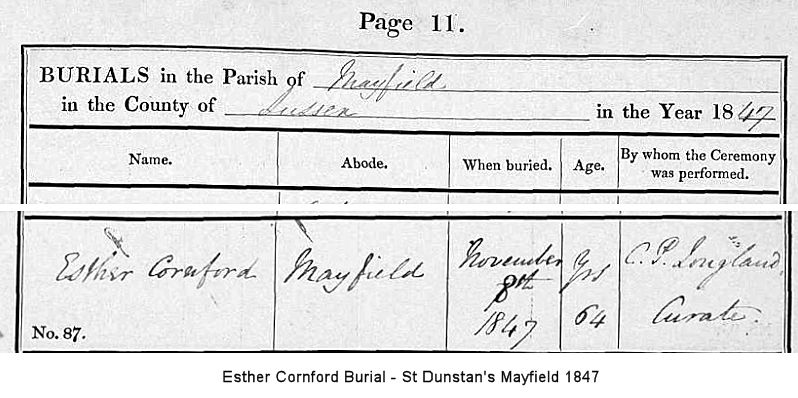 Page 11.
BURIALS in the Parish of Mayfield
in the County of Sussex in the Year 1847
Name. Abode. When buried. Age. By whom the Ceremony was performed.
Esther Cornford Mayfield November 8th 1847 Yrs 64 C. P. Longland, Curate.
No. 87.
Esther Cornford Burial - St Dunstan's Mayfield 1847